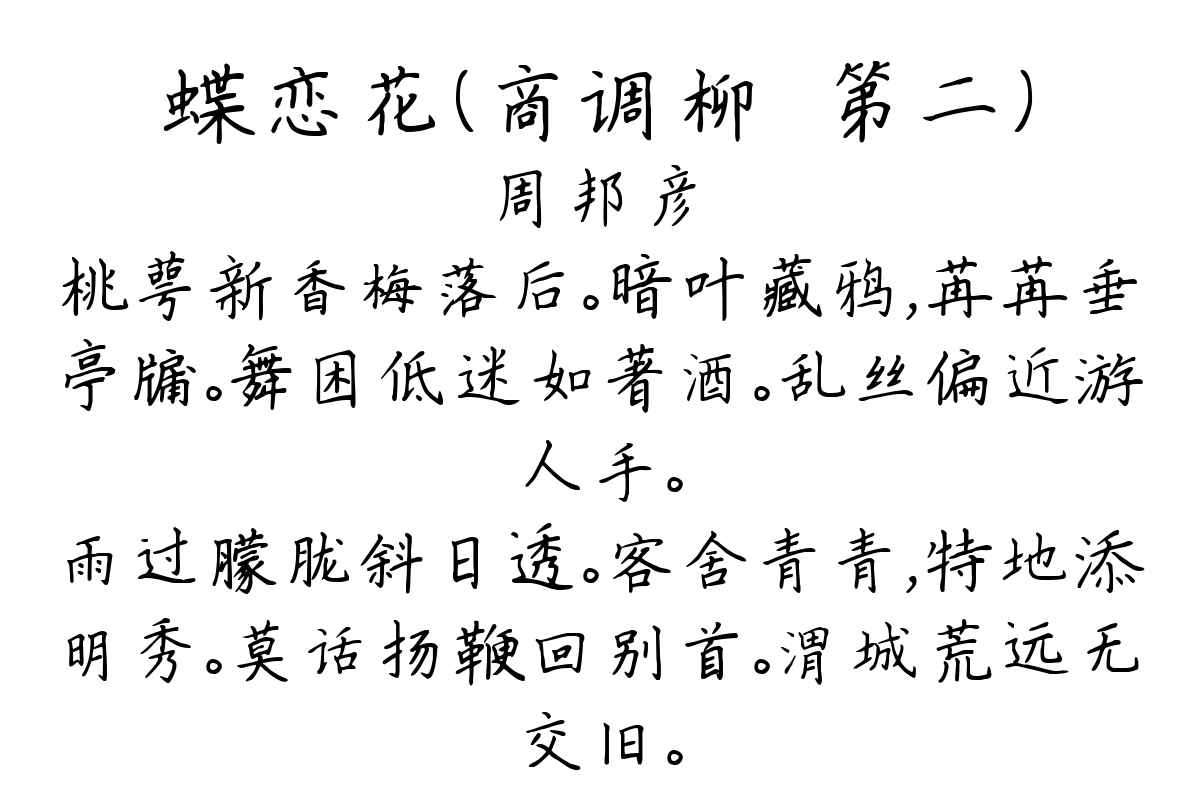 蝶恋花(商调柳 第二)
周邦彦
桃萼新香梅落后。暗叶藏鸦,苒苒垂
亭牖。舞困低迷如著酒。乱丝偏近游
人手。
雨过朦胧斜日透。客舍青青,特地添
明秀。莫话扬鞭回别首。渭城荒远无
交旧。